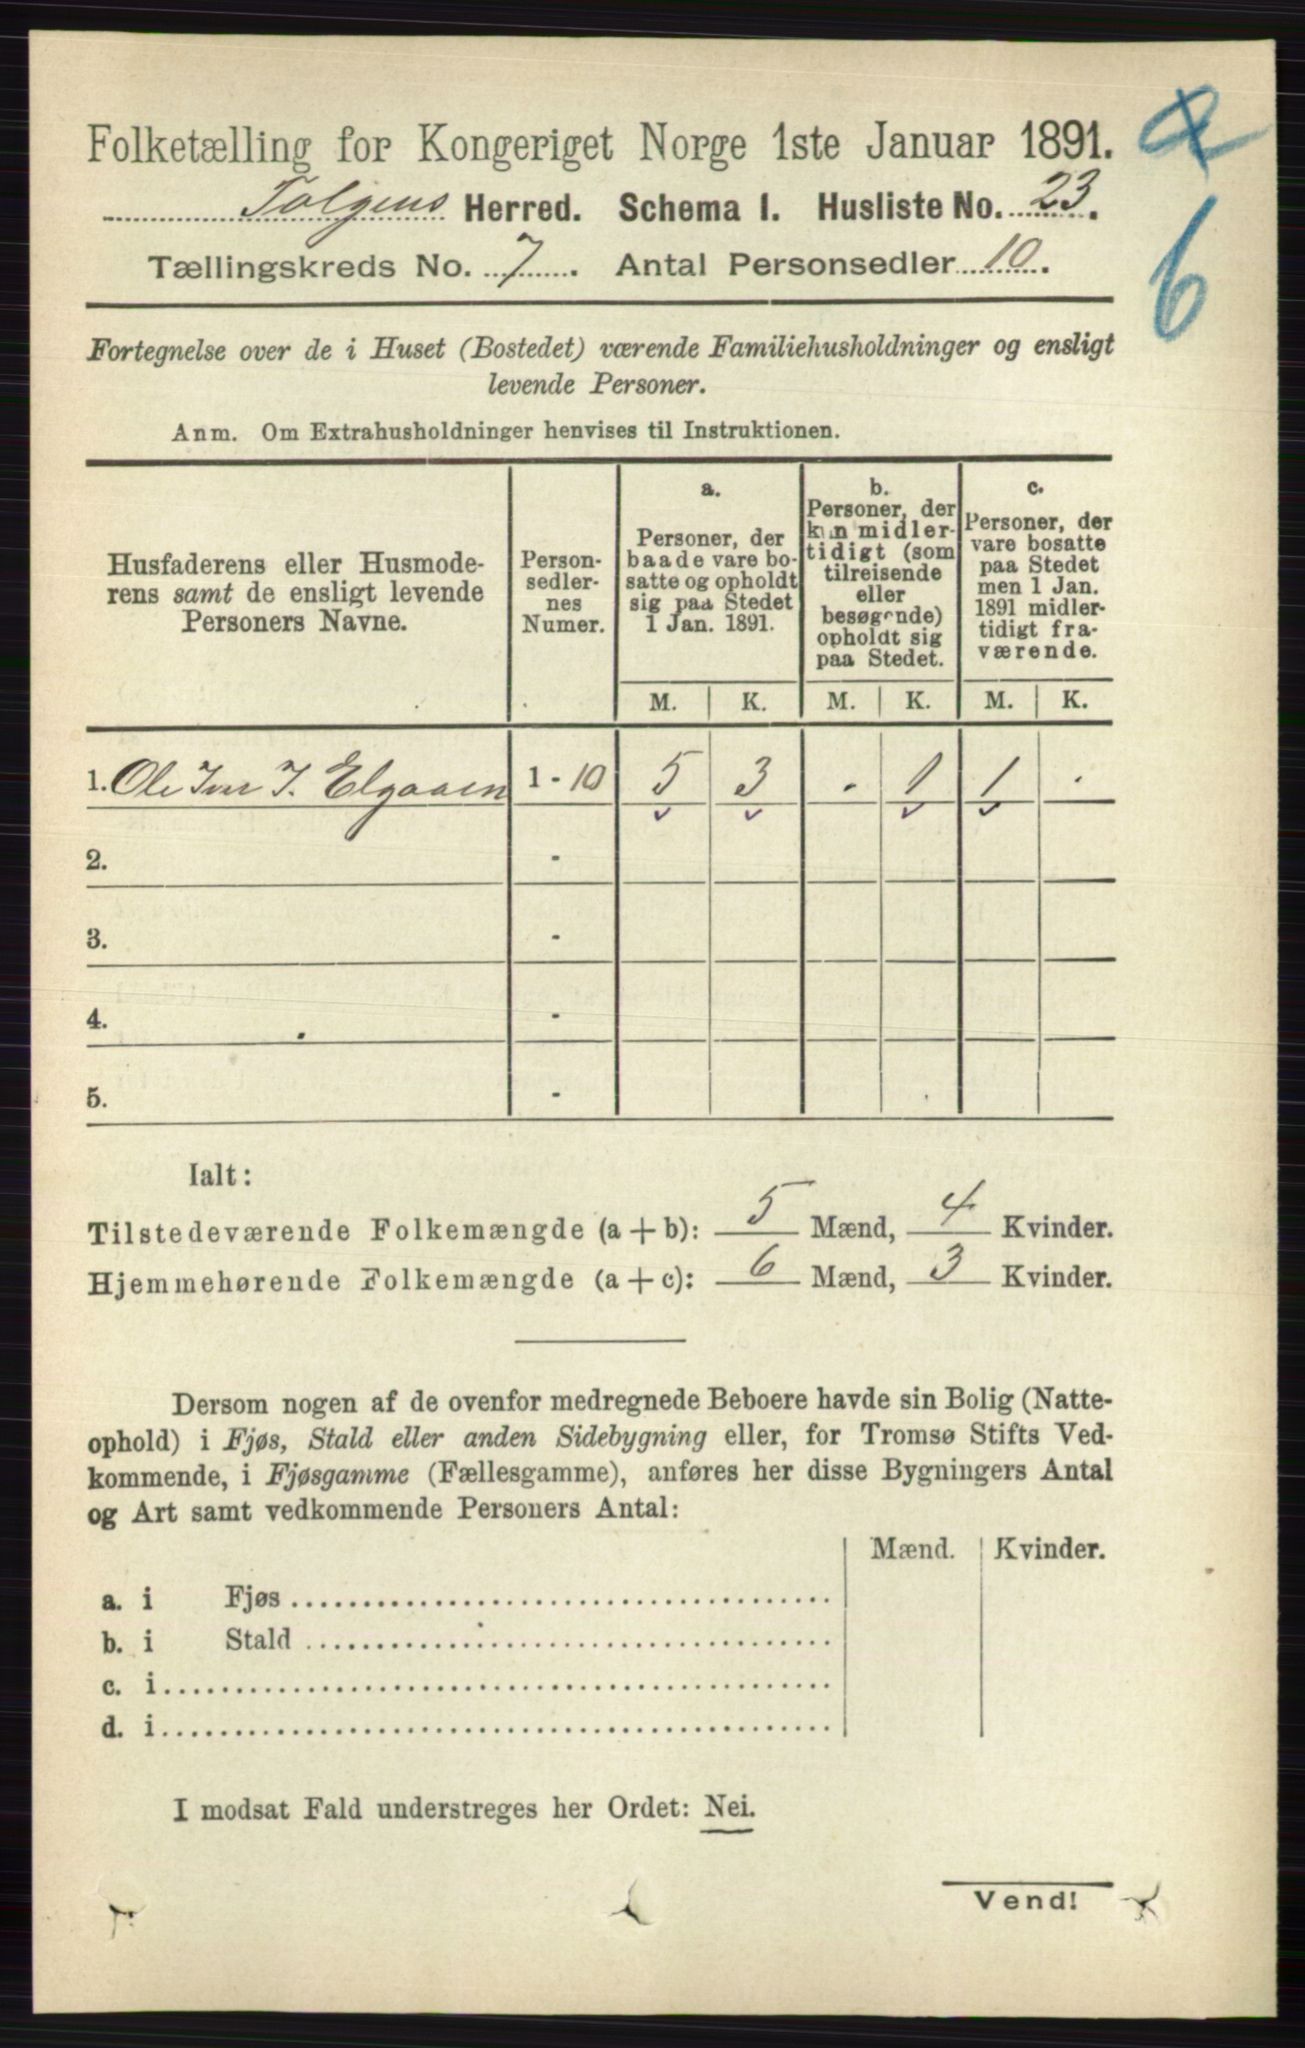 Folketælling for Kongeriget Norge 1ste Januar 1891.
Tolgens Herred. Schema I. Husliste No. 23.
Tællingskreds No. 7. Antal Personsedler 10.
6
Fortegnelse over de i Huset (Bostedet) værende Familiehusholdninger og ensligt
levende Personer.
Anm. Om Extrahusholdninger henvises til Instruktionen.
Husfaderens eller Husmode-
rens samt de ensligt levende
Personers Navne.
Person-
sedler-
nes
Numer.
a.
Personer, der
baade vare bo-
satte og opholdt
sig paa Stedet
1 Jan. 1891.
b.
Personer, der
kun midler-
tidigt (som
tilreisende
eller
besøgende)
opholdt sig
paa Stedet.
c.
Personer, der
vare bosatte
paa Stedet
men 1 Jan.
1891 midler-
tidigt fra-
værende.
M. K. M. K. M. K.
1. Ole J. Elgaaen 1 - 10 5 3 - 1 1 -
2. -
3. -
4. -
5. -
Ialt:
Tilstedeværende Folkemængde (a + b): 5 Mænd, 4 Kvinder.
Hjemmehørende Folkemængde (a + c): 6 Mænd, 3 Kvinder.
Dersom nogen af de ovenfor medregnede Beboere havde sin Bolig (Natte-
ophold) i Fjøs, Stald eller anden Sidebygning eller, for Tromsø Stifts Ved-
kommende, i Fjøsgamme (Fællesgamme), anføres her disse Bygningers Antal
og Art samt vedkommende Personers Antal:
Mænd. Kvinder.
a. i Fjøs
b. i Stald
c. i
d. i
I modsat Fald understreges her Ordet: Nei.
Vend!